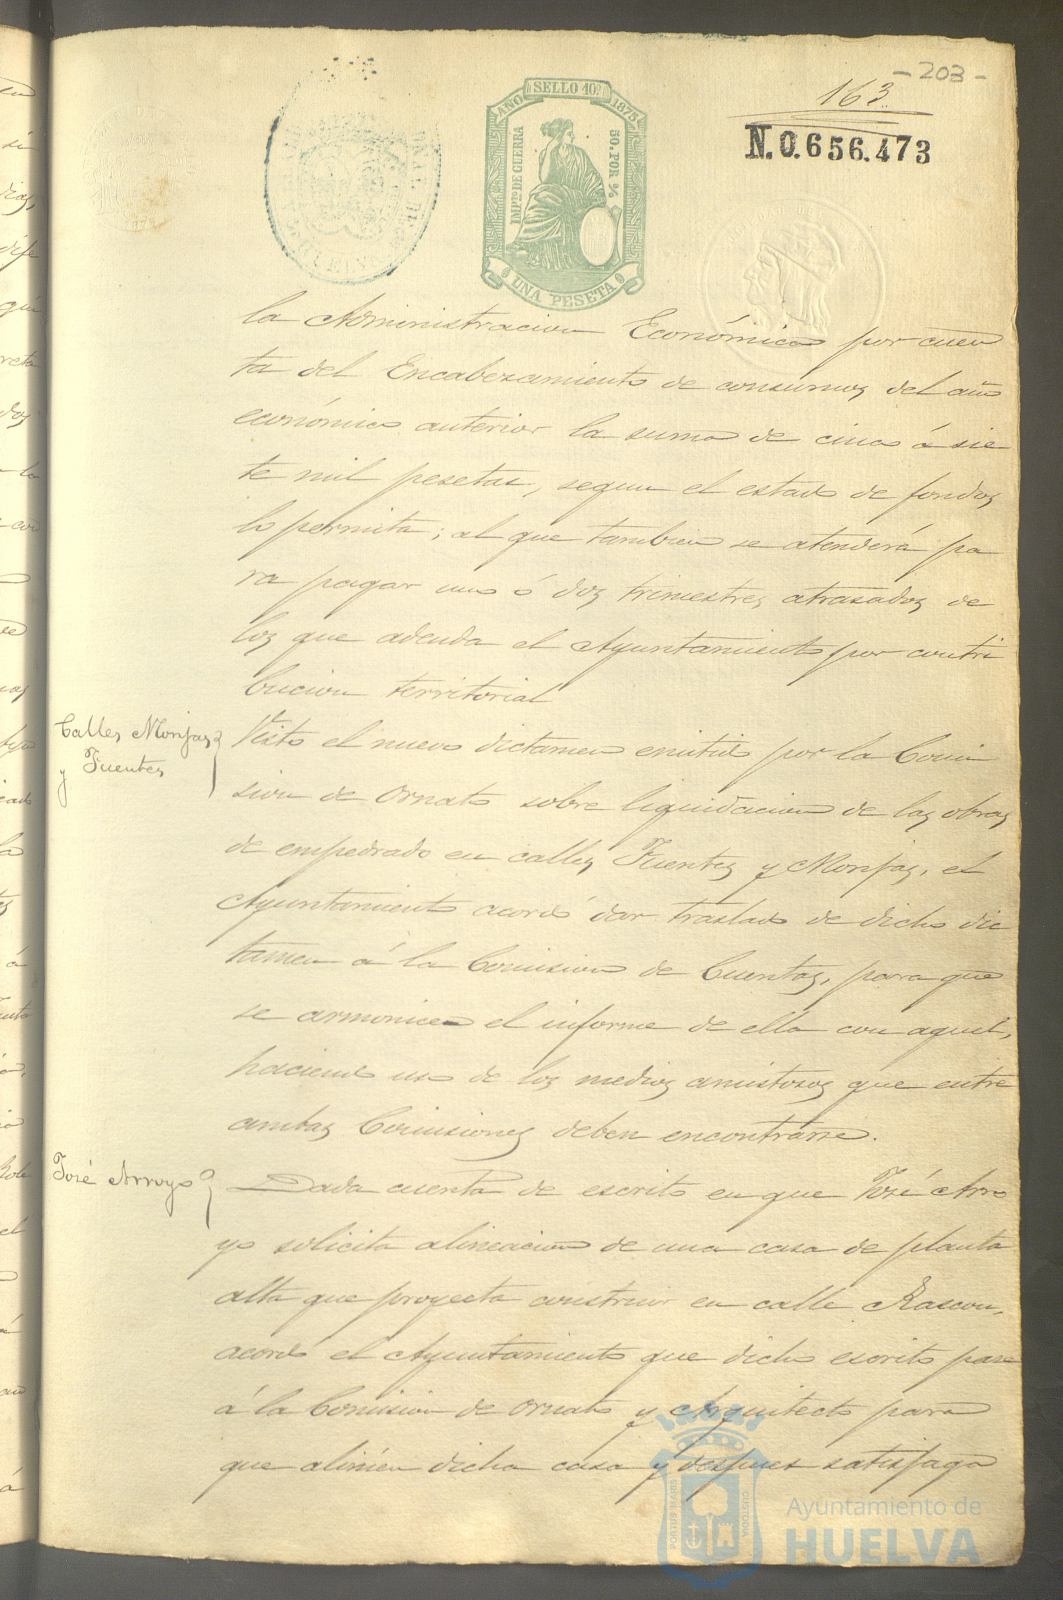 - 203 -
163
N. 0.656.473
AÑO SELLO 10º 1875
IMPTO DE GUERRA
50 POR %
UNA PESETA
la Administracion Económica por cuen
ta del Encabezamiento de consumos del año
económico anterior la suma de cinco á sie
te mil pesetas, segun el estado de fondos
lo permita; al que tambien se atenderá pa
ra pagar uno ó dos trimestres atrasados de
los que adeuda el Ayuntamiento por contri
bucion territorial
Calles Monjas
y Fuentes
Visto el nuevo dictamen emitido por la Comi
sion de Ornato sobre liquidacion de las obras
de empedrado en calles Fuentes y Monjas, el
Ayuntamiento acordó dar traslado de dicho dic
tamen á la Comision de Cuentas, para que
se armonice el informe de ella con aquel,
haciendo uso de los medios amistosos que entre
ambas Comisiones deben encontrarse.
José Arroyo
Dada cuenta de escrito en que José Arro
yo solicita alineacion de una casa de planta
alta que proyecta construir en calle Rascon,
acordó el Ayuntamiento que dicho escrito pase
á la Comision de Ornato y Arquitecto para
que alineen dicha casa y despues satisfaga
PORTUS MARIS
CUSTODIA
Ayuntamiento de
HUELVA